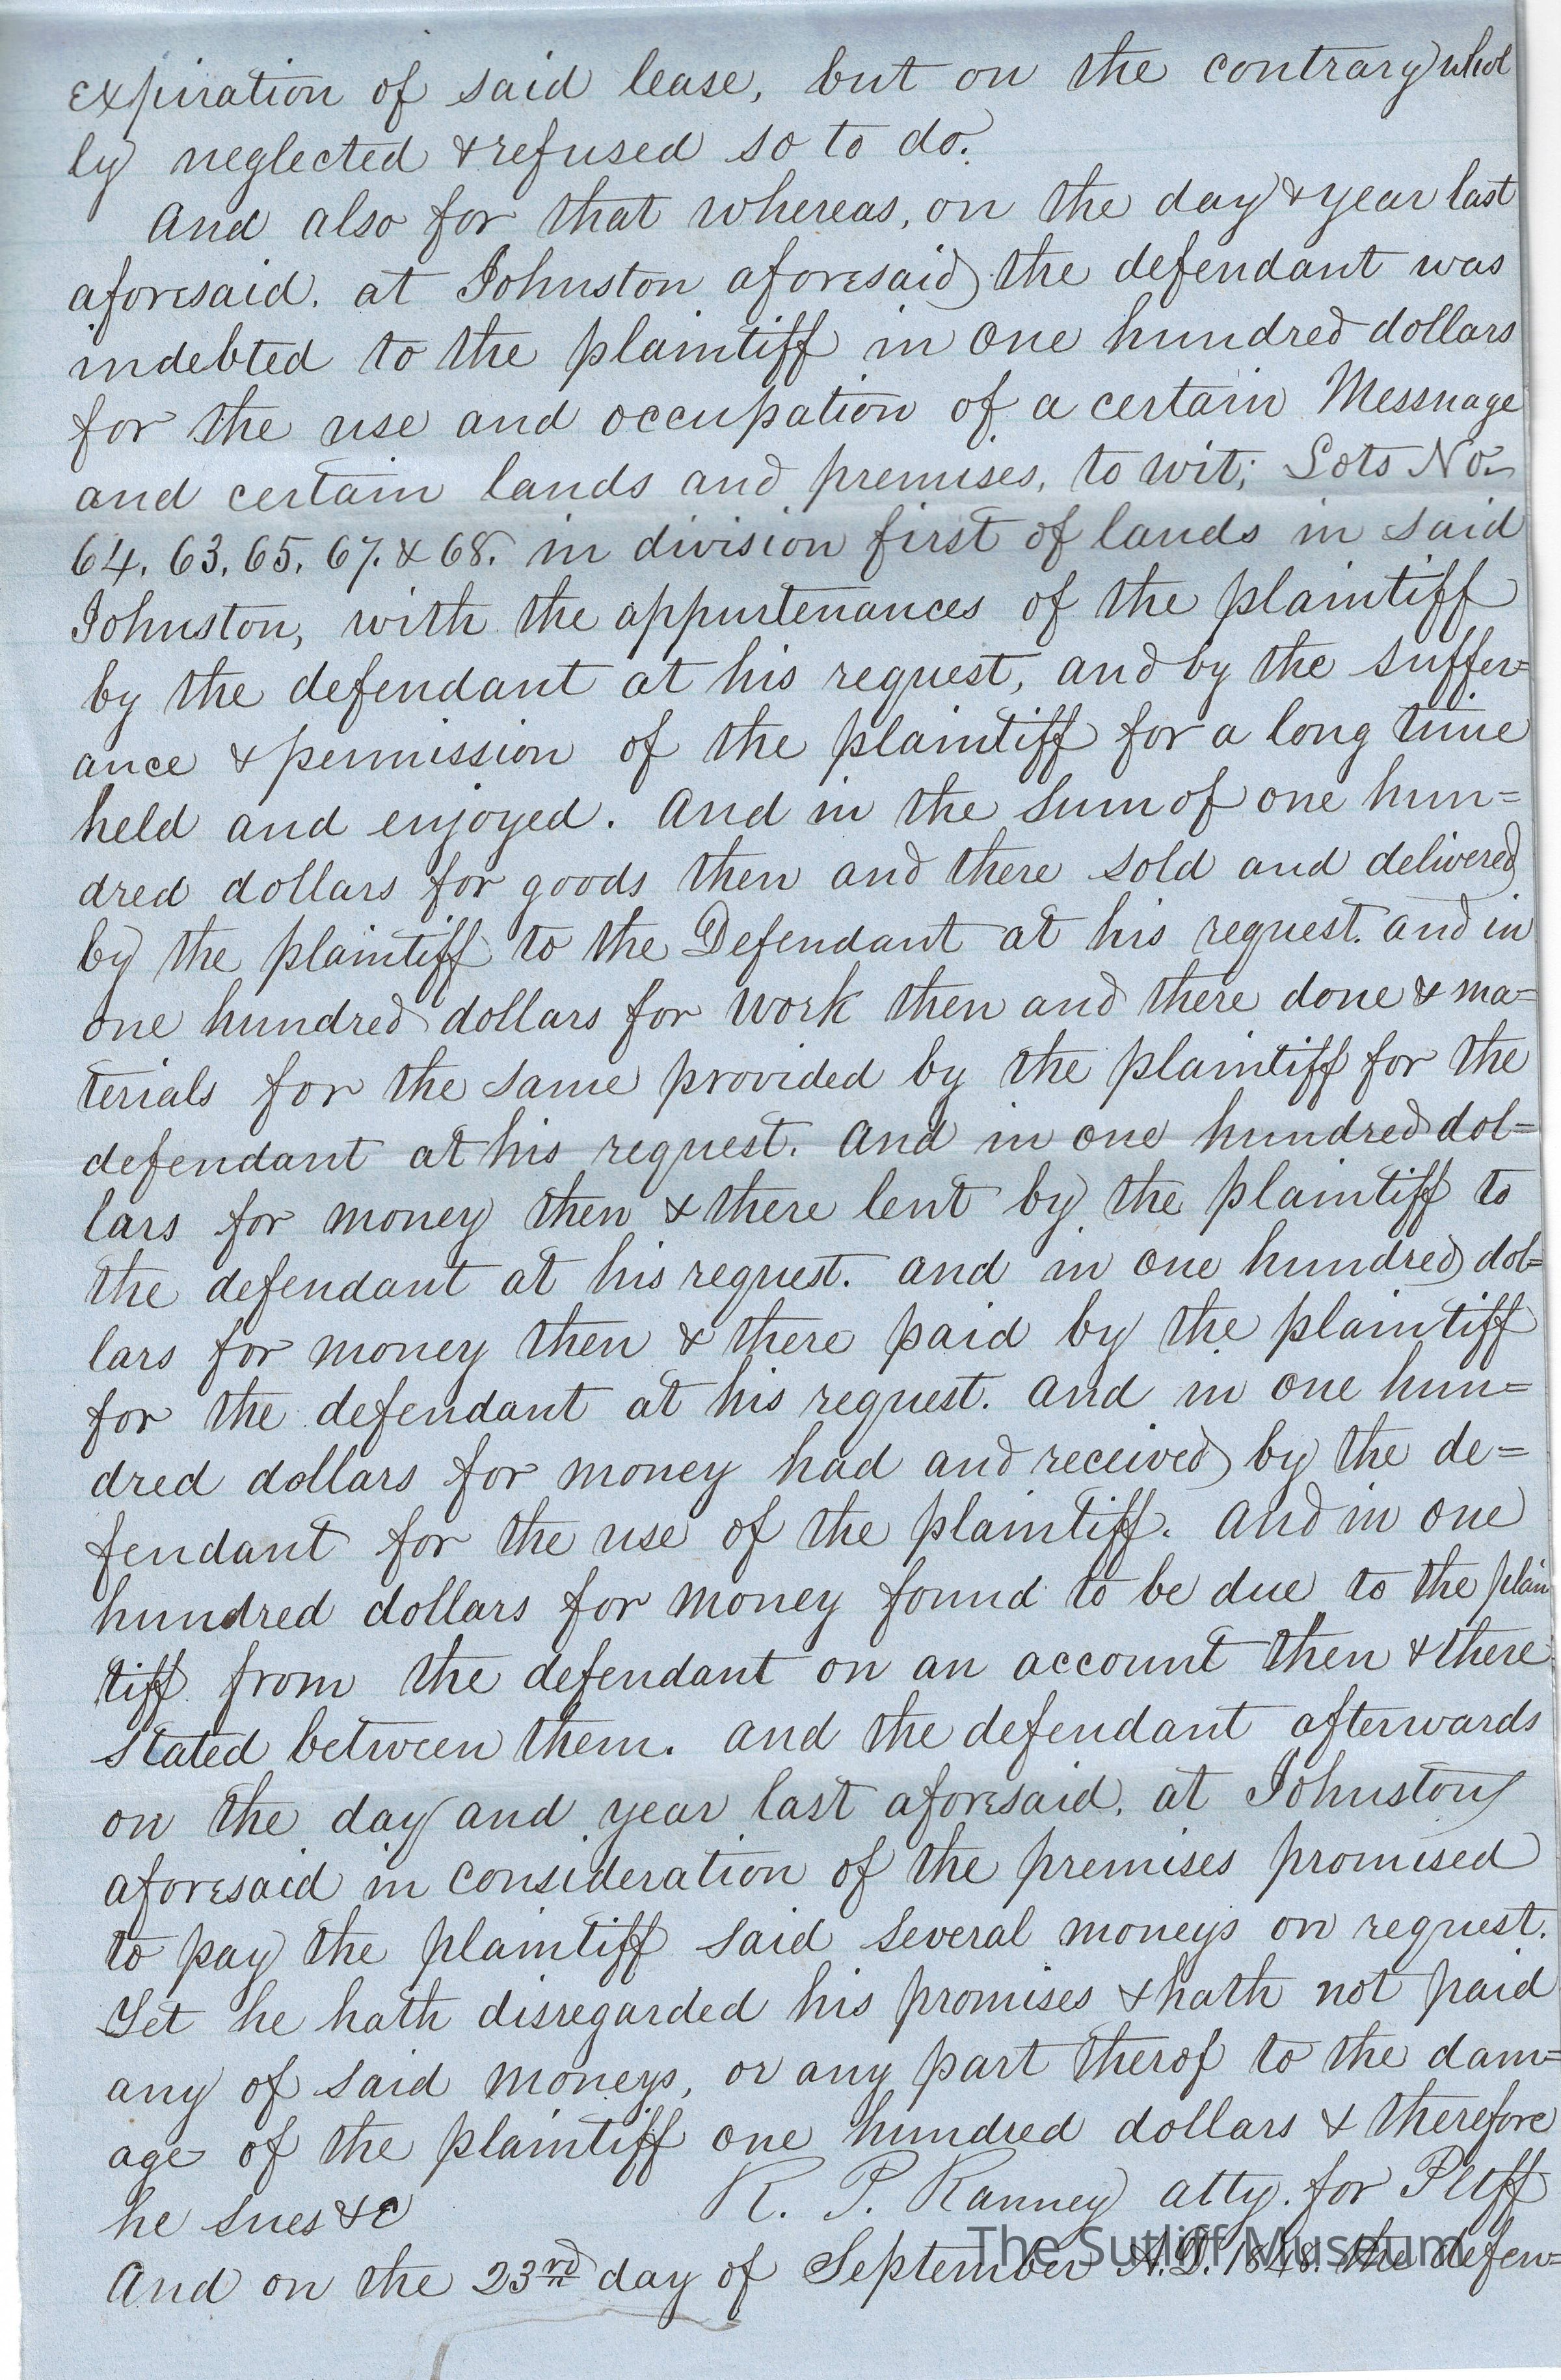 expiration of said lease, but on the contrary whol
ly neglected & refused so to do.
And also for that whereas, on the day & year last
aforesaid. at Johnston aforesaid the defendant was
indebted to the plaintiff in one hundred dollars
for the use and occupation of a certain Messuage
and certain lands and premises, to wit; Lots No.
64. 63. 65. 67. & 68. in division first of lands in said
Johnston, with the appurtenances of the plaintiff
by the defendant at his request, and by the suffer=
ance & permission of the plaintiff for a long time
held and enjoyed. And in the sum of one hun=
dred dollars for goods then and there sold and delivered
by the plaintiff to the Defendant at his request. and in
one hundred dollars for work then and there done & ma=
terials for the same provided by the plaintiff for the
defendant at his request. And in one hundred dol=
lars for money then & there lent by the plaintiff to
the defendant at his request. and in one hundred dol=
lars for money then & there paid by the plaintiff
for the defendant at his request. and in one hun=
dred dollars for money had and received by the de=
fendant for the use of the plaintiff. And in one
hundred dollars for money found to be due to the plain
tiff from the defendant on an account then & there
stated between them. and the defendant afterwards
on the day and year last aforesaid. at Johnston
aforesaid in consideration of the premises promised
to pay the plaintiff said several moneys on request.
Yet he hath disregarded his promises & hath not paid
any of said moneys, or any part therof to the dam=
age of the plaintiff one hundred dollars & therefore
he sues &c R. P. Ranney atty. for Pltff
And on the 23rd day of September A.D. 1848. the defen=
The Sutliff Museum